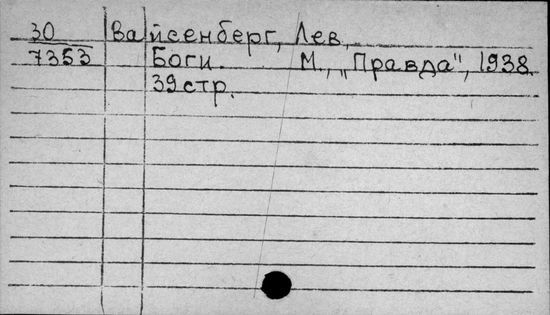 30 Вайсенберг, Лев.
7353 Боги. М., „Правда", 1938.
39 стр.